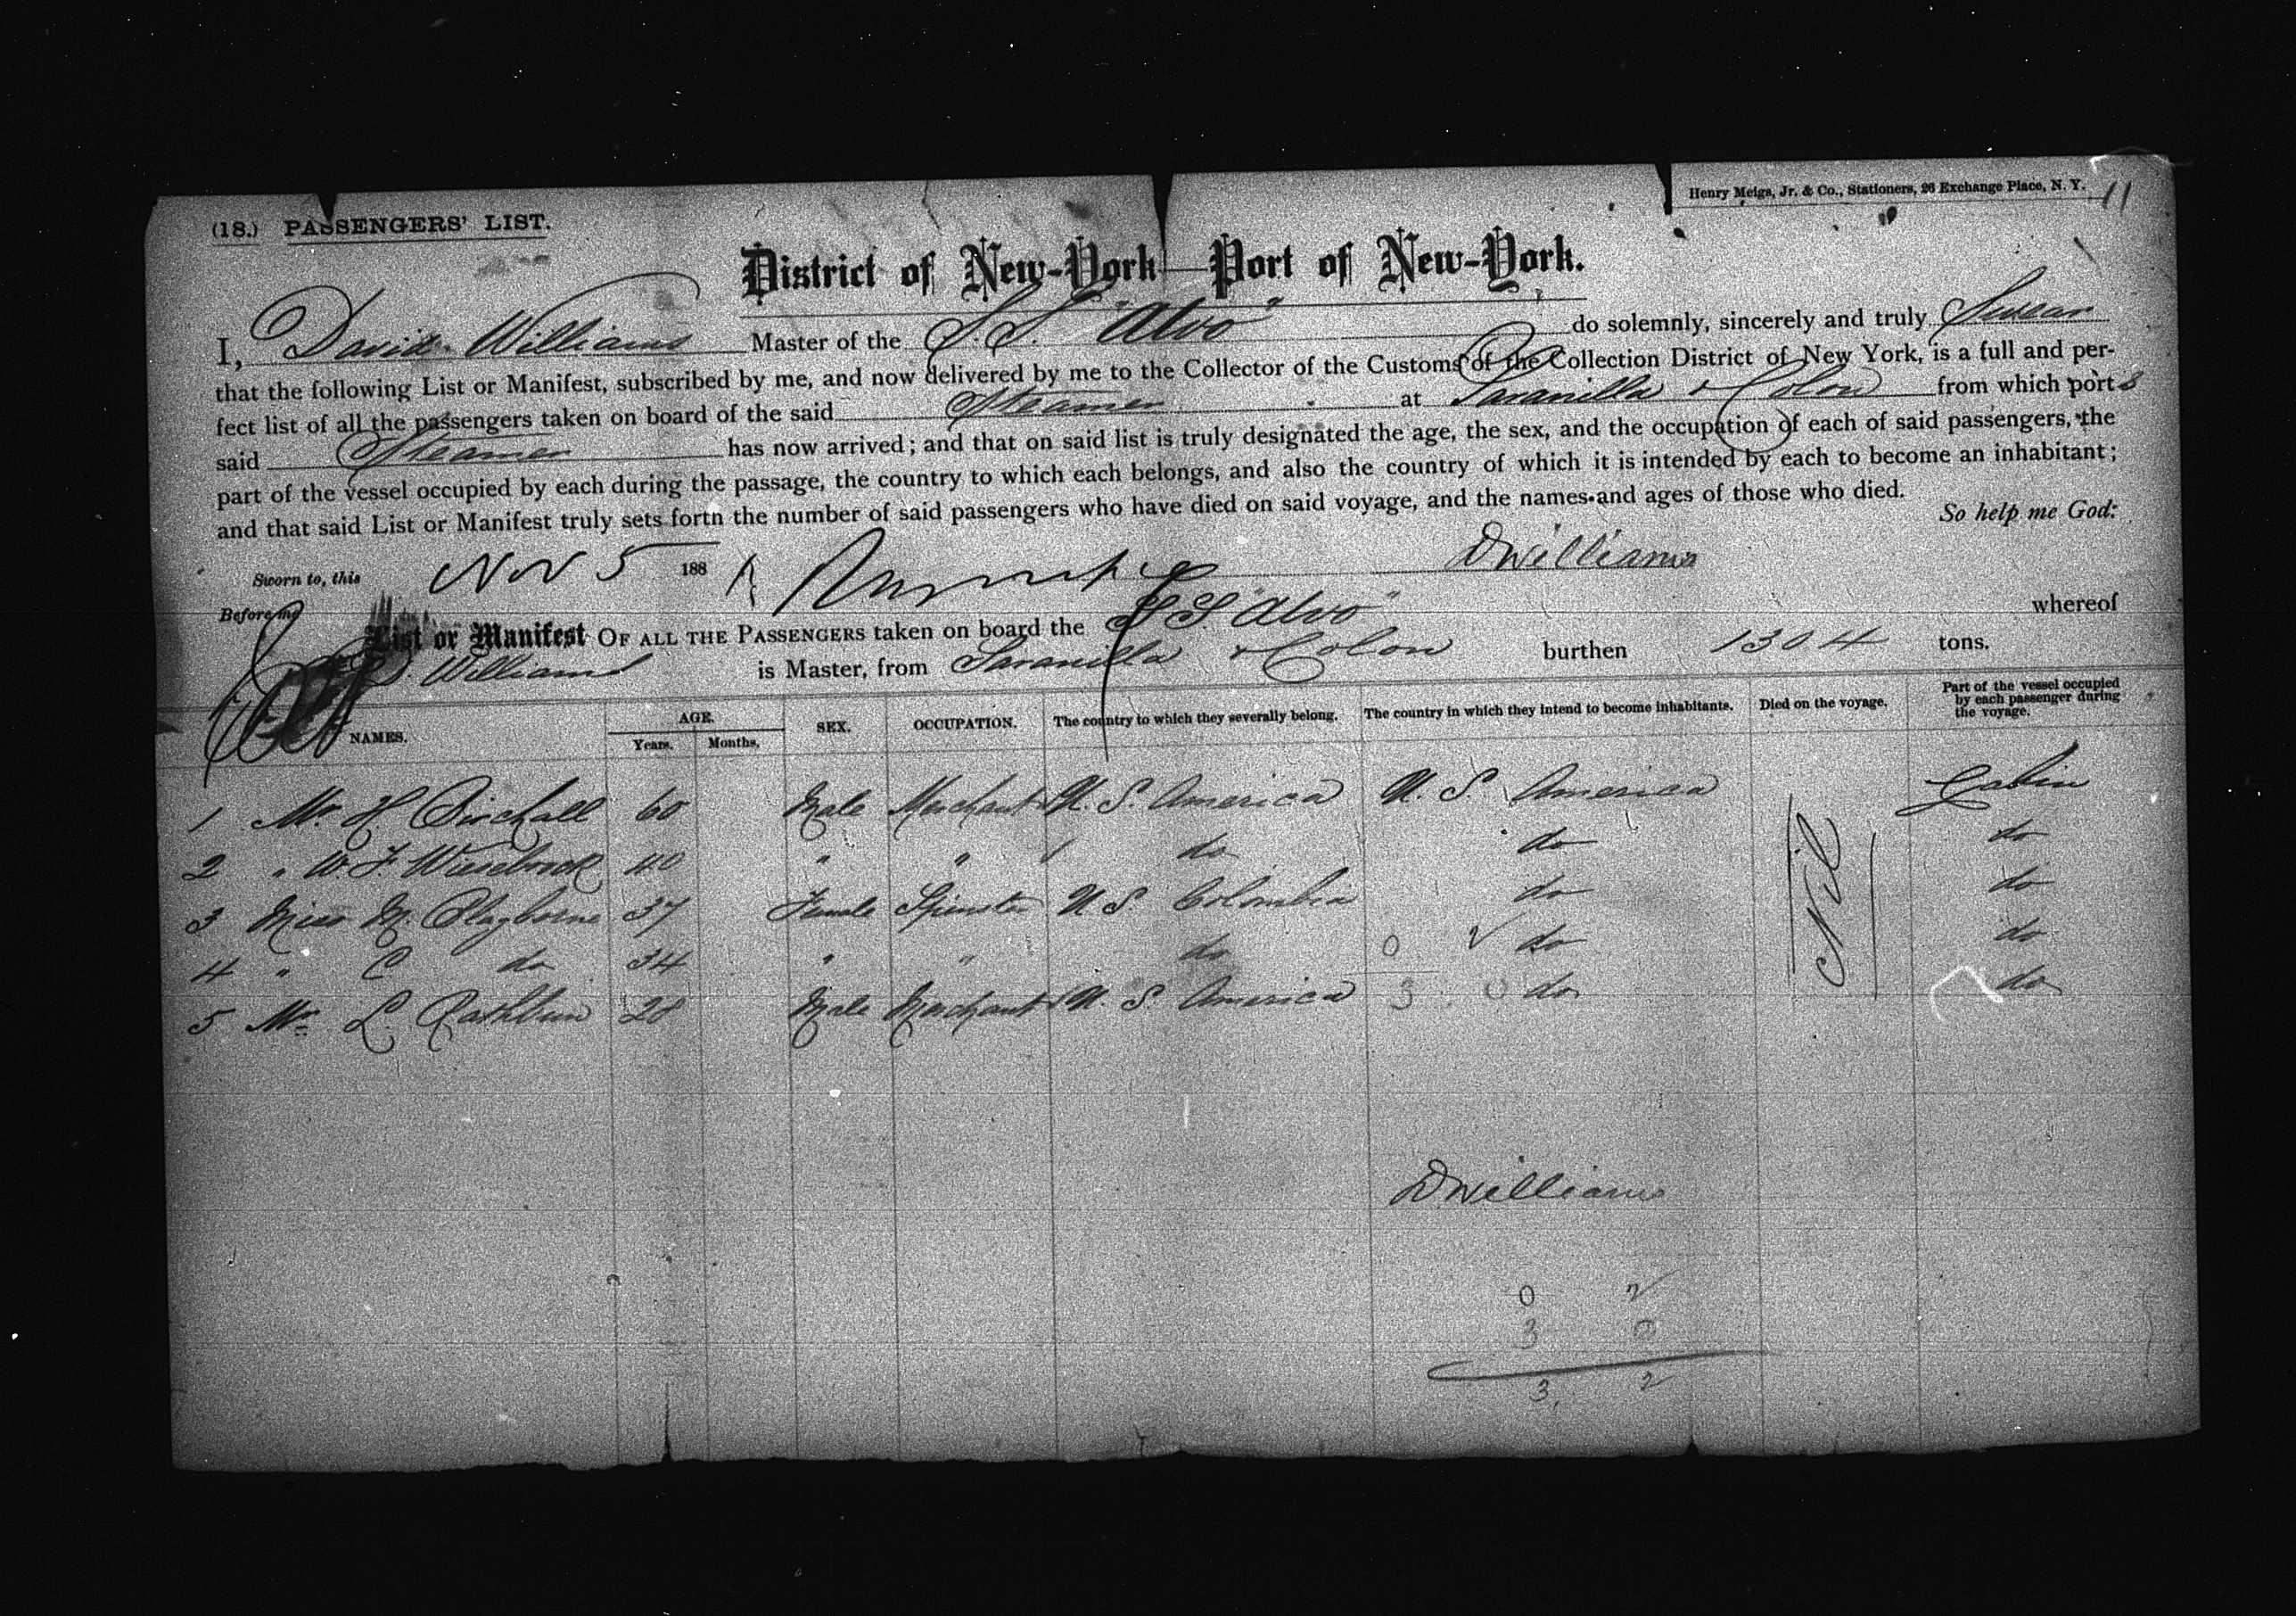 Henry Meigs, Jr. & Co., Stationers, 26 Exchange Place, N. Y. 11
(18.) PASSENGERS' LIST.
District of New-York—Port of New-York.
I, David Williams Master of the S.S. "Alvo" do solemnly, sincerely and truly Swear
that the following List or Manifest, subscribed by me, and now delivered by me to the Collector of the Customs of the Collection District of New York, is a full and per-
fect list of all the passengers taken on board of the said Steamer at Savanilla & Colon from which ports
said Steamer has now arrived; and that on said list is truly designated the age, the sex, and the occupation of each of said passengers, the
part of the vessel occupied by each during the passage, the country to which each belongs, and also the country of which it is intended by each to become an inhabitant;
and that said List or Manifest truly sets forth the number of said passengers who have died on said voyage, and the names and ages of those who died.
So help me God:
Sworn to, this Nov 5 188 DWilliams
Before me
List or Manifest OF ALL THE PASSENGERS taken on board the S S "Alvo" whereof
D. Williams is Master, from Savanilla & Colon burthen 1304 tons.
NAMES. AGE. Years. Months. SEX. OCCUPATION. The country to which they severally belong. The country in which they intend to become inhabitants. Died on the voyage. Part of the vessel occupied by each passenger during the voyage.
1 Mr. H. Birchall 60 Male Merchant U. S. America U. S. America Cabin
2 " W. F. 40 " " do do do
3 Miss M. Clayborne 37 Female Spinster U S Colombia do do
4 " C do 34 " " do 0 2 do do
5 Mr. L. Rathbun 28 Male Merchant U. S. America 3 0 do do
Nil
DWilliams
0 2
3 0
3 2